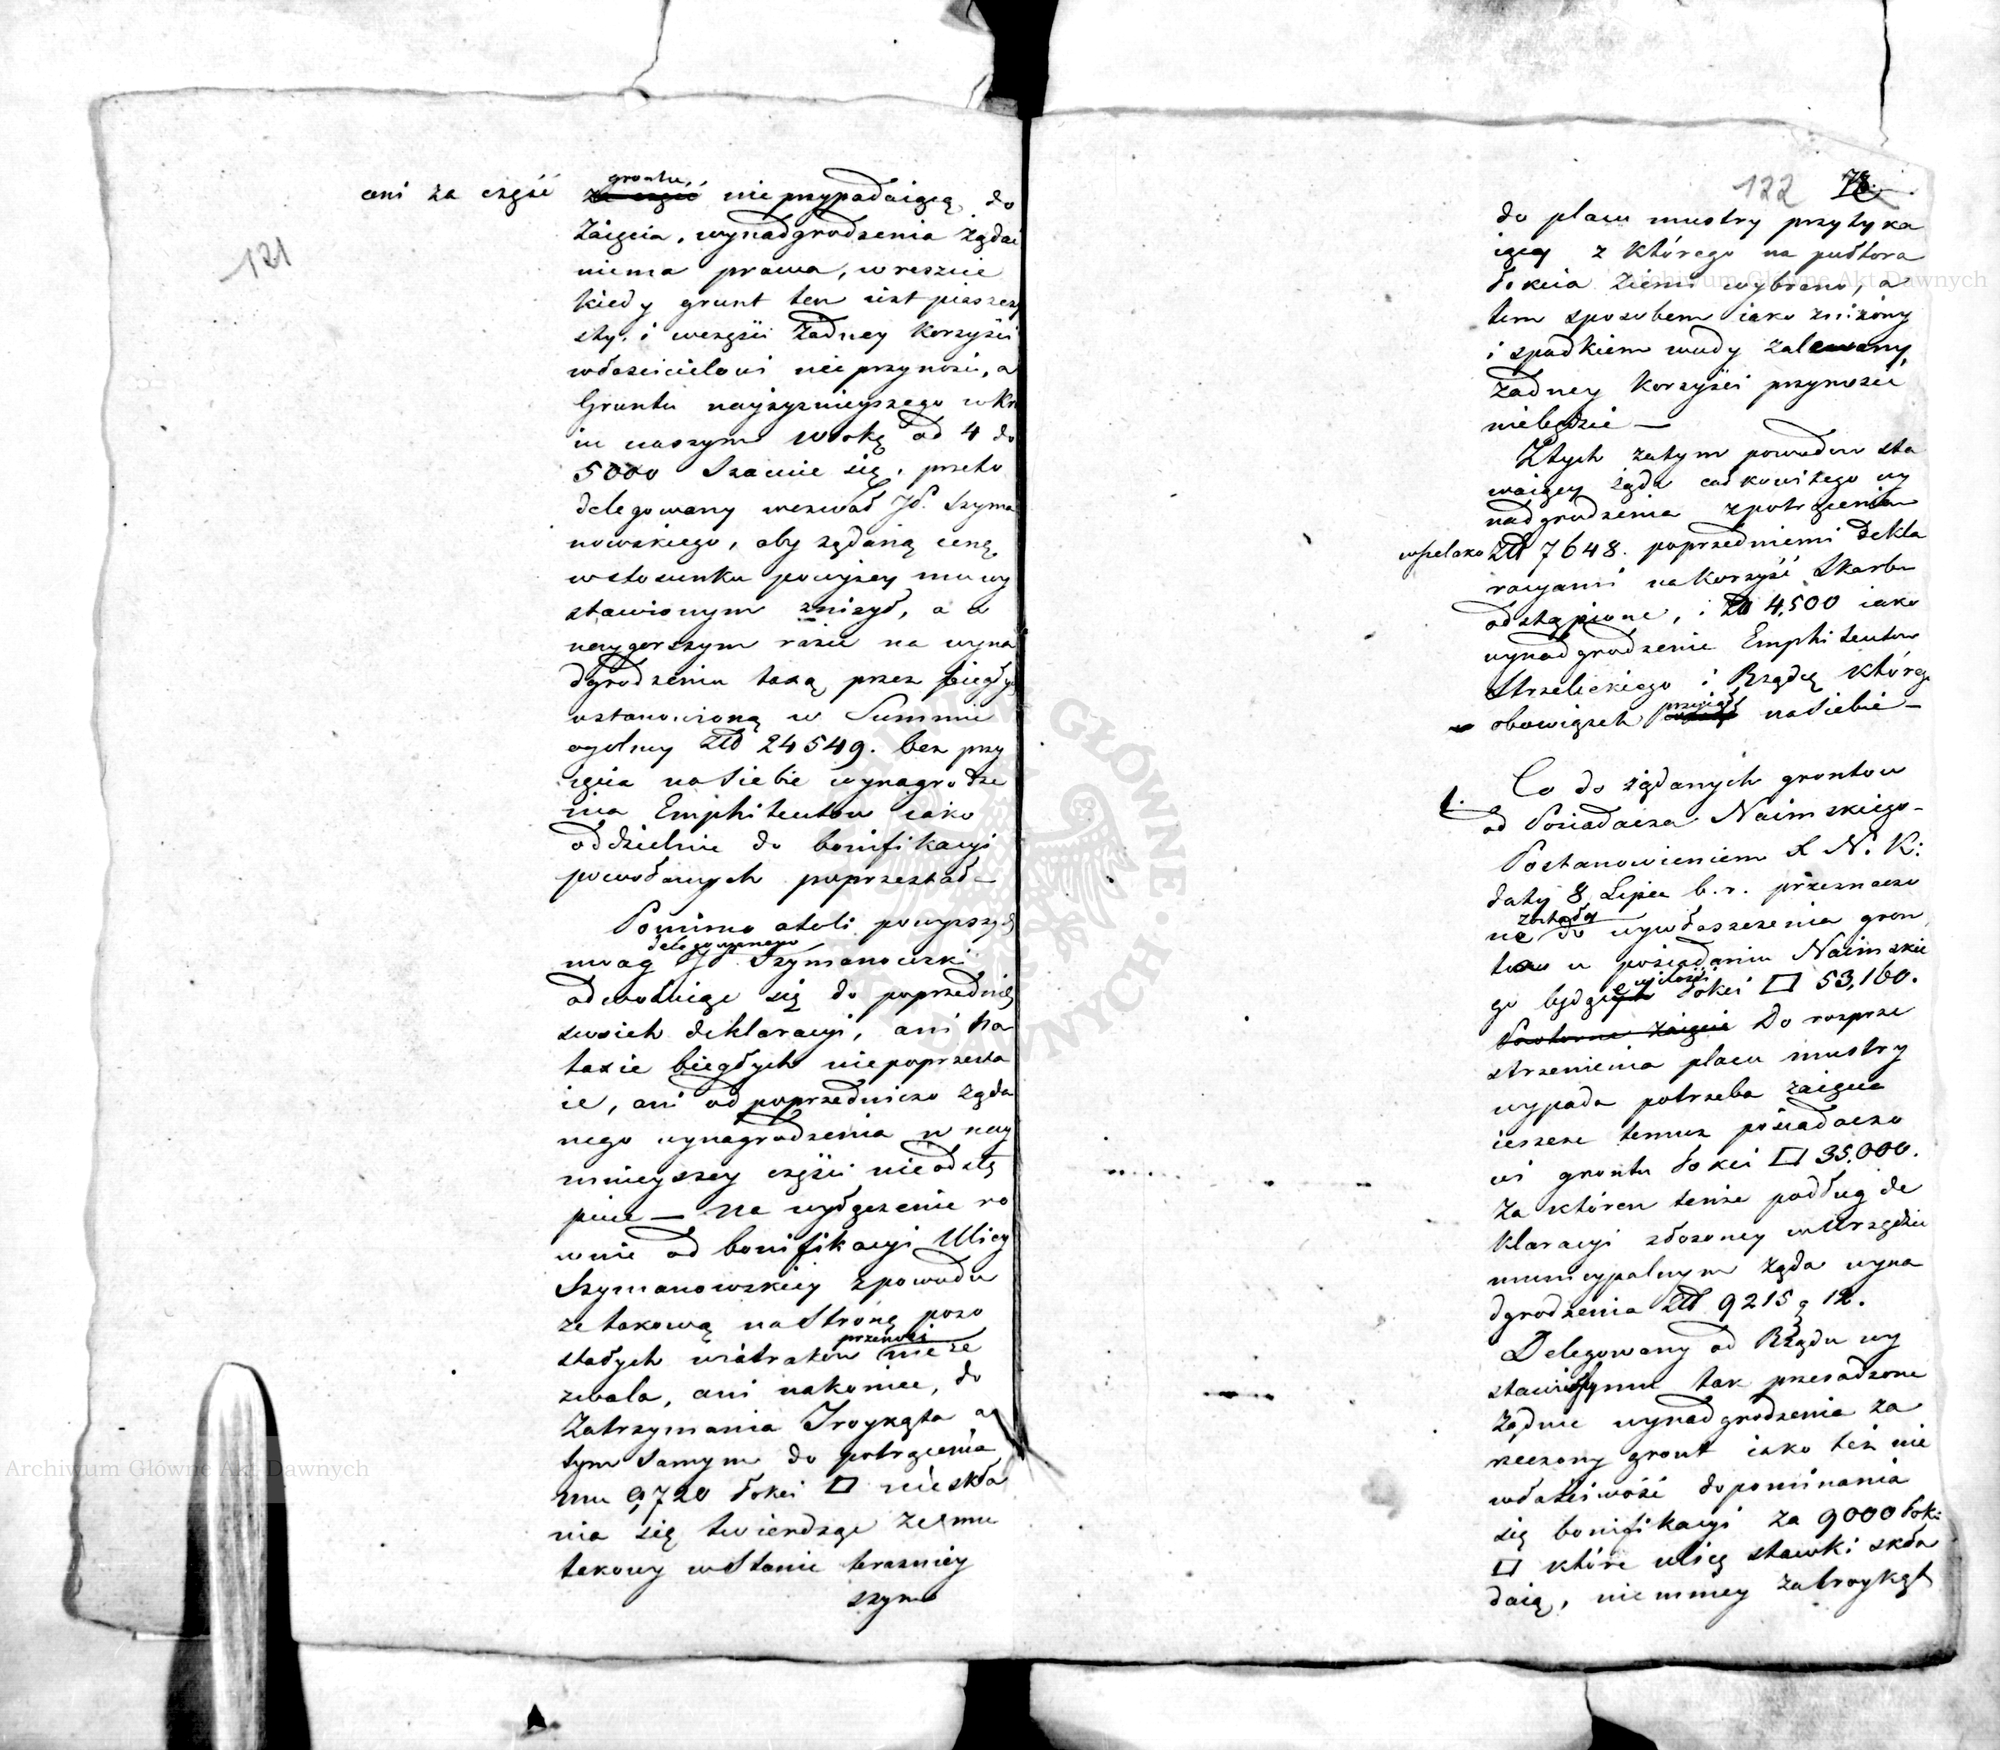 121
ani za część ~~za część~~ gruntu nieprzypadaiącą do
Zaięcia, wynadgrodzenia żądać
niema prawa, wreszcie
kiedy grunt ten iest piaszczy
sty, i wczęści żadney korzyści
właścicielowi nieprzynosi, a
Gruntu nayżyznieyszego wkra
iu naszym włokę od 4 do
5000 Szacuie się, przeto
delegowany wezwał JP. Szyma
nowskiego, aby żądaną cenę
wstosunku powyżey mu wy
stawionym zniżył, a w
naygorszym razie na wyna
dgrodzeniu taxą przez biegłych
ustanowioną w Summie
ogólney Złł 24549. bez przy
ięcia na siebie wynagrodze
nia Emphiteutów iako
oddzielnie do bonifikacyi
powołanych poprzestał –
Pomimo atoli powyższych
uwag delegowanego JP Szymanowski
odwołuiąc się do poprzednich
swoich deklaracyi, ani na
taxie biegłych niepoprzesta
ie, ani od poprzedniczo żąda
nego wynagrodzenia w nay
mnieyszey części nieodstę
puie — Na wyłączenie ro
wnie od bonifikacyi Ulicy
Szymanowskiey zpowodu
że takową na Stronę pozo
stałych wiatraków przenosi nieze
zwala, ani nakoniec, do
Zatrzymania Troykąta a
tym samym do potrącenia
mu 9,720 łokci □ nieskła
nia się twierdząc że mu
takowy wStanie teraźniey
szym
Archiwum Główne Akt Dawnych
122 ~~78~~
do placu mustry przytyka
iący z którego na półtora
Archiwum Główne Akt Dawnych
łokcia ziemi wybrano, a
tem sposobem iako zniżony
i spadkiem wody zalewany,
żadney korzyści przynosić
niebędzie —
Ztych zatym powodów sta
waiący żąda całkowitego wy
nadgrodzenia zpotrąceniem
wszelako Złł 7648. poprzedniemi dekla
racyami na korzyść Skarbu
odstąpione, i Złł 4,500 iako
wynadgrodzenie Emphiteutów
Strzeleckiego i Rządcę którego
obowiązek przyiął na siebie –
1. Co do żądanych gruntów
od Posiadacza Naimskiego –
Postanowieniem X N. K:
daty 8 Lipca b.r. przeznaczo
ne zostały do wywłaszczenia grun
ta w posiadaniu Naimskie
go będące w ilości łokci □ 53,160.
~~Powtórne zaięcie~~ Do rozprze
strzenienia placu mustry
wypada potrzeba zaięcia
ieszcze temuż posiadaczo
wi gruntu łokci □ 35.000.
Za któren tenże podług de
klaracyi złożoney wUrzędzie
municypalnym żąda wyna
dgrodzenia Złł 9215 g 12.
Delegowany od Rządu wy
stawił temu tak przesadzone
żądanie wynadgrodzenia za
rzeczony grunt iako też nie
właściwość dopominania
się bonifikacyi za 9000 łokci
□ które ulicę stawki skła
daią, niemniey za troykąt